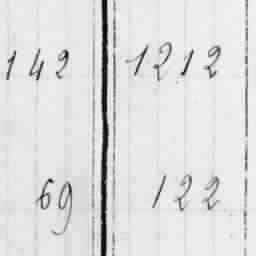 142 1212
69 122